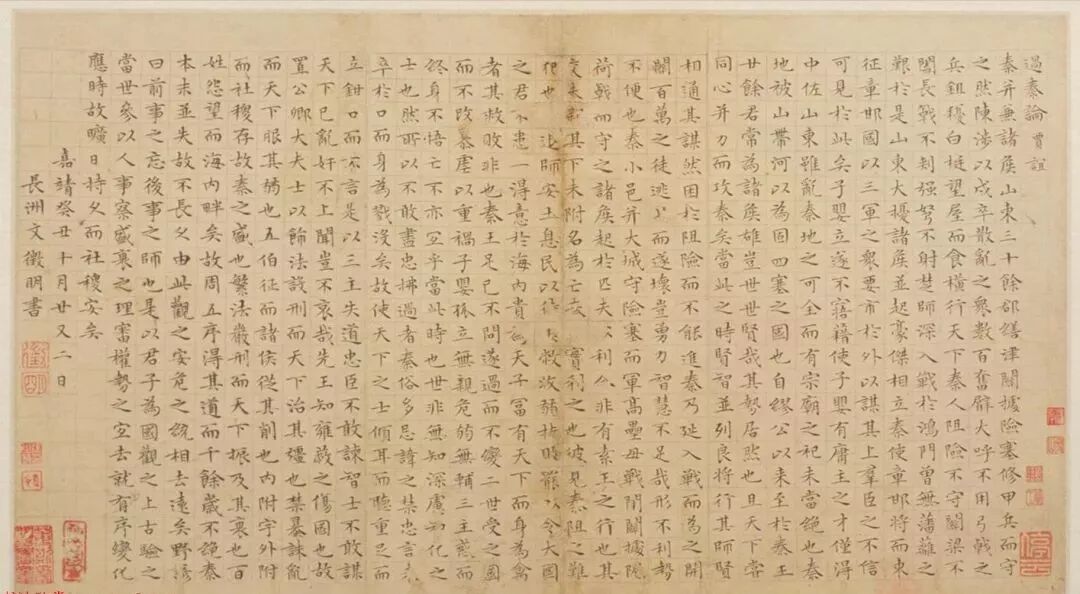 過秦論 賈誼
秦并兼諸侯山東三十餘郡繕津關據險塞修甲兵而守
之然陳涉以戍卒散亂之衆數百奮臂大呼不用弓戟之
兵鉏櫌白梃望屋而食橫行天下秦人阻險不守關梁不
闔長戟不刺强弩不射楚師深入戰於鴻門曾無藩籬之
艱於是山東大擾諸侯並起豪傑相立秦使章邯將而東
征章邯因以三軍之衆要市於外以謀其上羣臣之不信
可見於此矣子嬰立遂不寤藉使子嬰有庸主之才僅得
中佐山東雖亂秦地之可全而有宗廟之祀未當絶也秦
地被山帶河以為固四塞之國也自繆公以來至於秦王
廿餘君常為諸侯雄豈世世賢哉其勢居然也且天下嘗
同心并力而攻秦矣當此之時賢智並列良將行其師賢
相通其謀然困於阻險而不能進秦乃延入戰而為之開
關百萬之徒逃北而遂壞豈勇力智慧不足哉形不利勢
不便也秦小邑并大城守險塞而軍高壘毋戰閉關據阨
荷戟而守之諸侯起於匹夫以利合非有素王之行也其
交未親其下未附名為亡秦實利之也彼見秦阻之難
犯也師安土息民以收弱扶罷以令大國
之君不患不得意於海內貴為天子富有天下而身為禽
者其救敗非也秦王足己不問遂過而不變二世受之因
而不改暴虐以重禍子嬰孤立無親危弱無輔三主惑而
終身不悟亡不亦宜乎當此時也世非無知深慮知化之
士也然所以不敢盡忠拂過者秦俗多忌諱之禁忠言未
卒於口而身為戮沒矣故使天下之士傾耳而聽重足而
立鉗口而不言是以三主失道忠臣不敢諫智士不敢謀
天下已亂奸不上聞豈不哀哉先王知雍蔽之傷國也故
置公卿大夫士以飾法設刑而天下治其彊也禁暴誅亂
而天下服其弱也五伯征而諸侯從其削也內守外附
而社稷存故秦之盛也繁法嚴刑而天下振及其衰也百
姓怨望而海內畔矣故周五序得其道而千餘歲不絕秦
本末並失故不長久由此觀之安危之統相去遠矣野諺
曰前事之忘後事之師也是以君子為國觀之上古驗之
當世參以人事察盛衰之理審權勢之宜去就有序變化
應時故曠日持久而社稷安矣
嘉靖癸丑十月廿又二日
長洲文徵明書